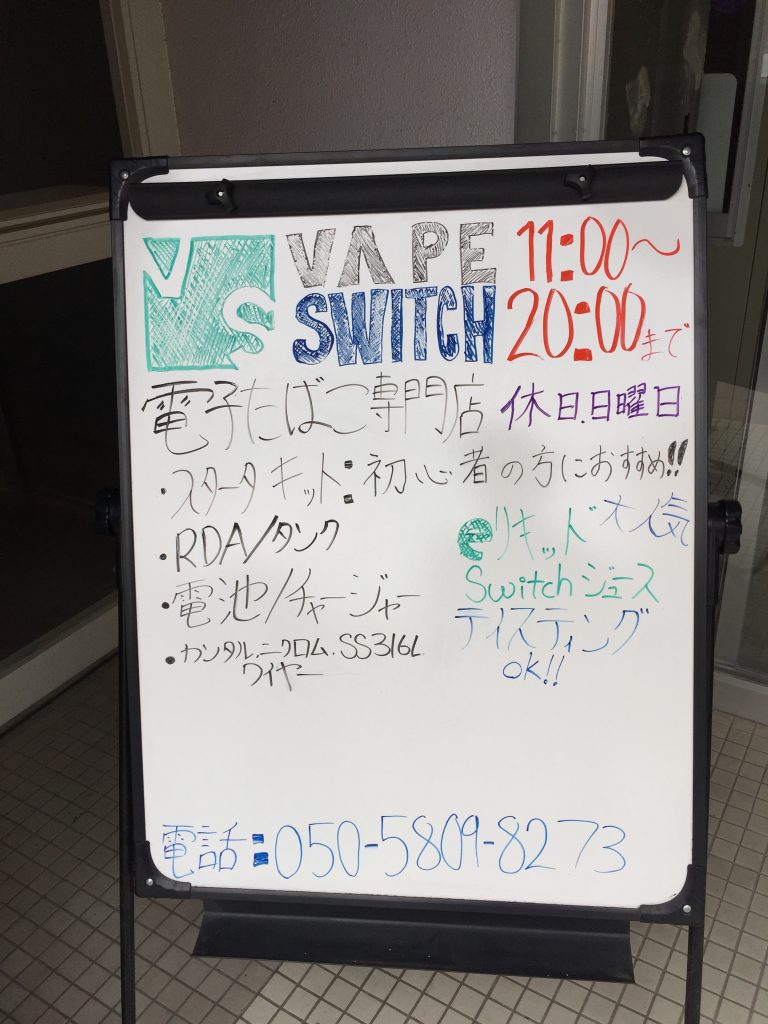 VS
VAPE
SWITCH
11:00〜
20:00まで
電子たばこ専門店
休日.日曜日
・スタータキット:初心者の方におすすめ!!
・RDA/タンク
・電池/チャージャー
・カンタル.ニクロム.SS316L
ワイヤー
eリキッド大人気
Switchジュース
テイスティング
OK!!
電話:050-5809-8273